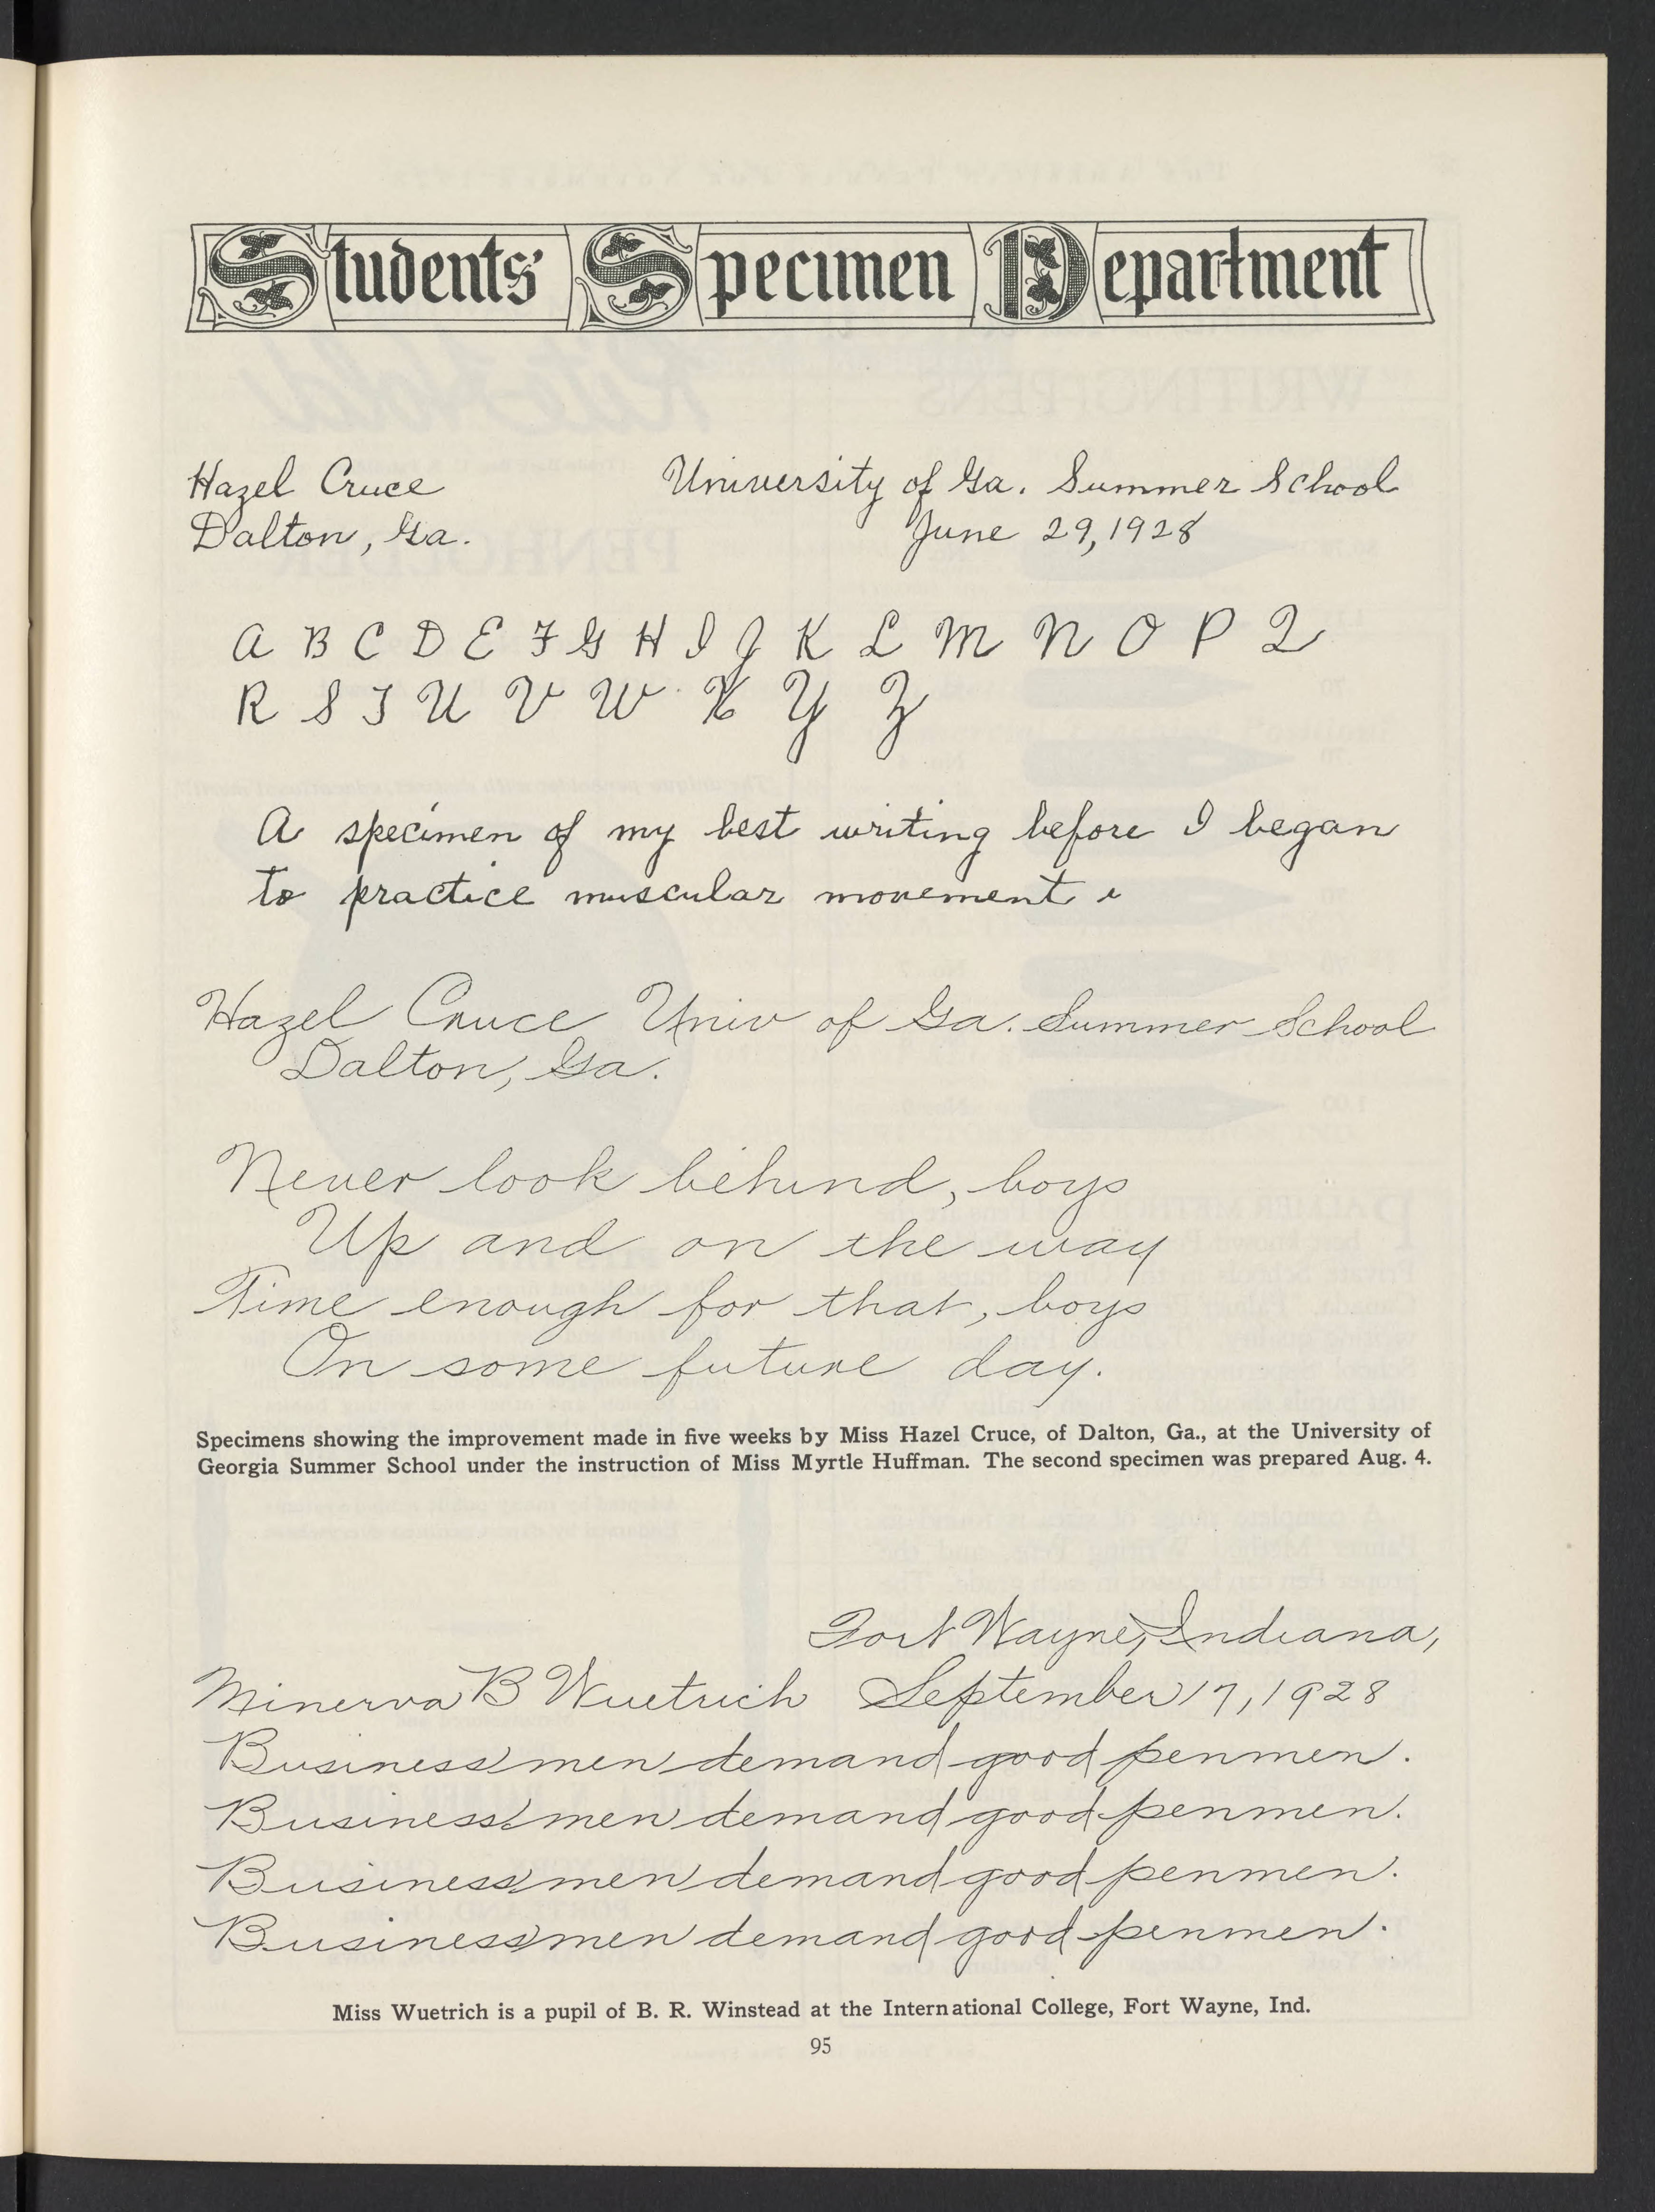 Students' Specimen Department
Hazel Cruce University of Ga. Summer School
Dalton, Ga. June 29, 1928
A B C D E F G H I J K L M N O P Q
R S T U V W X Y Z
A specimen of my best writing before I began
to practice muscular movement
Hazel Cruce Univ of Ga. Summer School
Dalton, Ga.
Never look behind, boys
Up and on the way
Time enough for that, boys
On some future day.
Specimens showing the improvement made in five weeks by Miss Hazel Cruce, of Dalton, Ga., at the University of
Georgia Summer School under the instruction of Miss Myrtle Huffman. The second specimen was prepared Aug. 4.
Fort Wayne, Indiana,
Minerva B Wuetrich September 17, 1928
Business men demand good penmen.
Business men demand good penmen.
Business men demand good penmen.
Business men demand good penmen.
Miss Wuetrich is a pupil of B. R. Winstead at the International College, Fort Wayne, Ind.
95